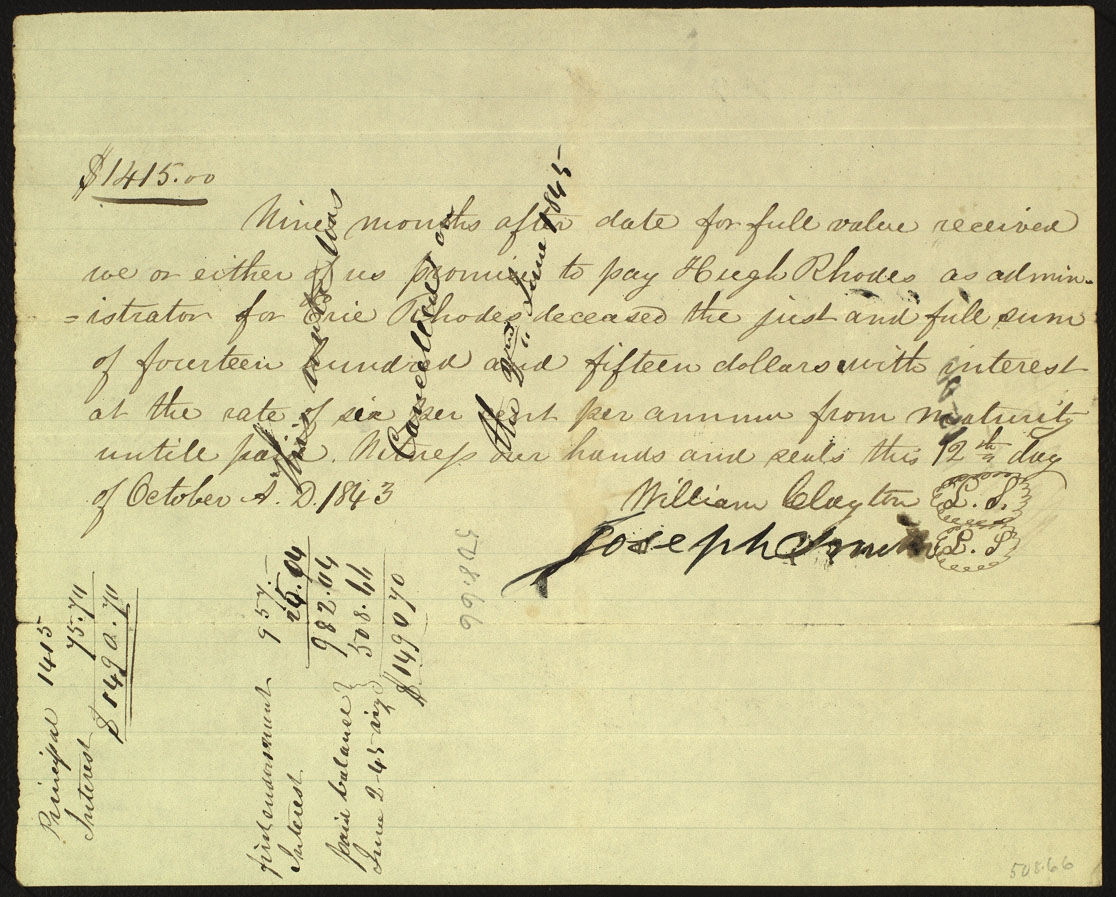 $1415.00
Nine months after date for full value received
we or either of us promise to pay Hugh Rhodes as admin-
=istrator for Erie Rhodes deceased the just and full sum
of fourteen hundred and fifteen dollars with interest
at the rate of six per cent per annum from maturity
untile paid. Witness our hands and seals this 12th day
of October A. D. 1843
William Clayton L. S.
Joseph Smith L. S.
This note was
Cancelled on
the 2nd June 1845
Principal 1415
Interest 75.70
$1490.70
first endorsement 957.–
Interest 25.04
982.04
paid balance }
June 2-45 viz } 508.66
$1490 70
508.66
508.66